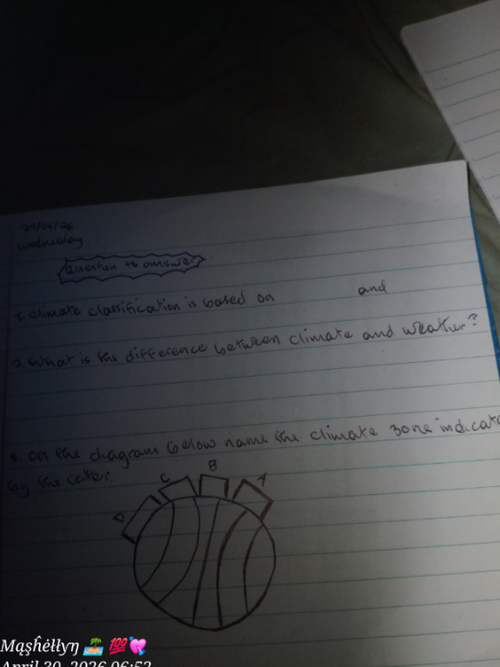 29/04/26
Wednesday
Question to answer
1. Climate classification is based on and
2. What is the difference between climate and weather?
3. On the diagram below name the climate zone indicate
by the letter.
D C B A
Mąşɦéłłyŋ 🏝️ 💯💘
April 30, 2026 06:52